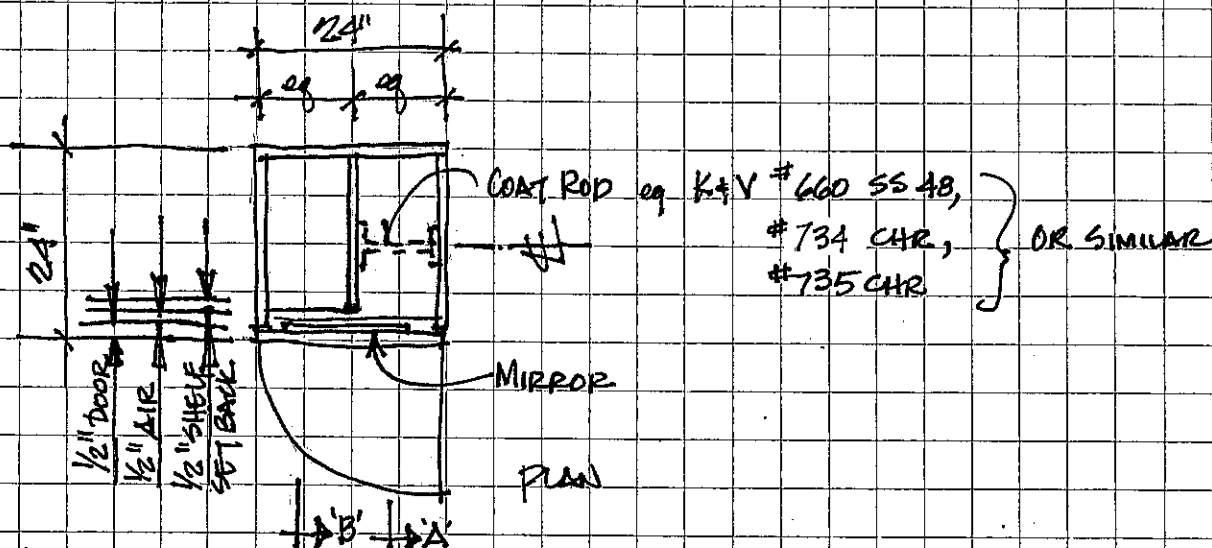 24"
eq eq
24"
COAT ROD eq K+V #660 SS 48,
#734 CHR,
#735 CHR
OR SIMILAR
MIRROR
1/2" DOOR
1/2" AIR
1/2" SHELF
SET BACK
PLAN
'B' 'A'